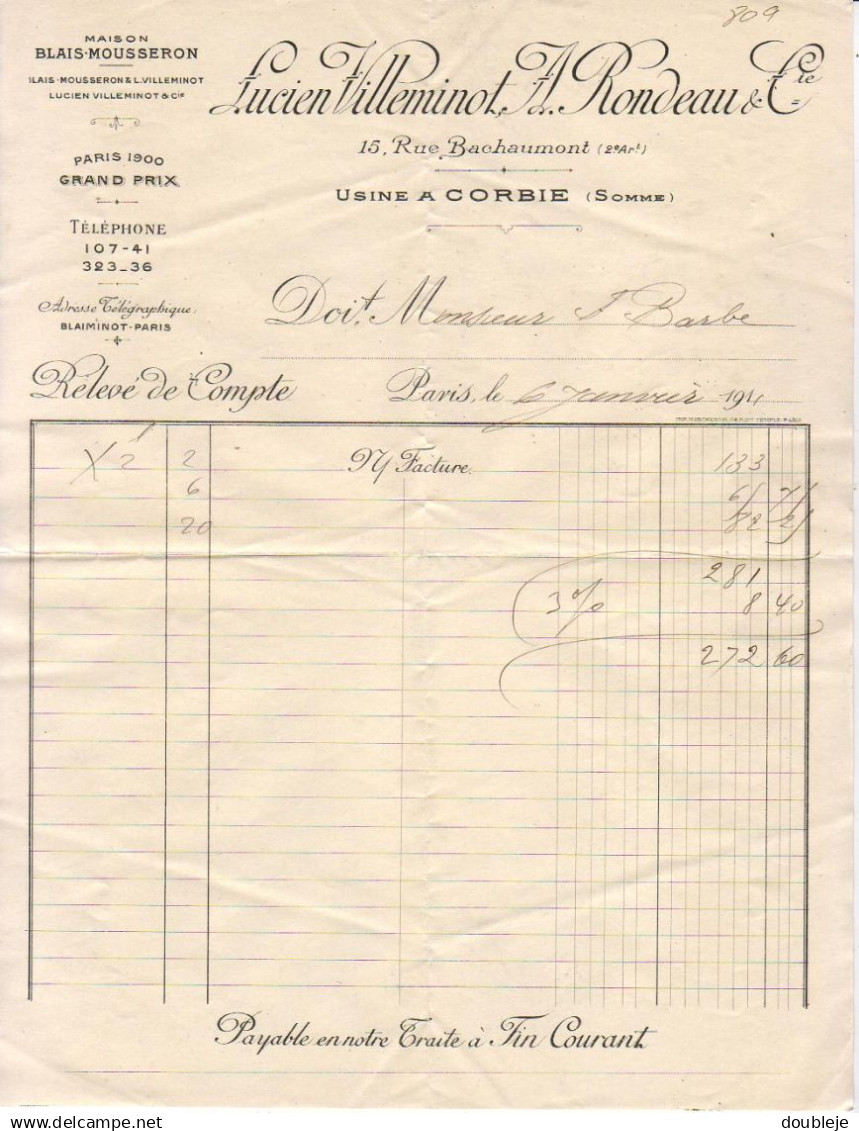 809
MAISON
BLAIS-MOUSSERON
LAIS-MOUSSERON & L.VILLEMINOT
LUCIEN VILLEMINOT & Cie
PARIS 1900
GRAND PRIX
TÉLÉPHONE
107-41
323-36
Adresse Télégraphique:
BLAIMINOT-PARIS
Lucien Villeminot, A. Rondeau & Cie
15, Rue Bachaumont (2e Art)
USINE A CORBIE (SOMME)
Doit Monsieur F Barbe
Rélevé de Compte
Paris, le 6 janvier 191
X 2 N/ Facture. 133
6
20 82
281
3% 8 40
272 60
Payable en notre Traite à Fin Courant
delcampe.net
doubleje